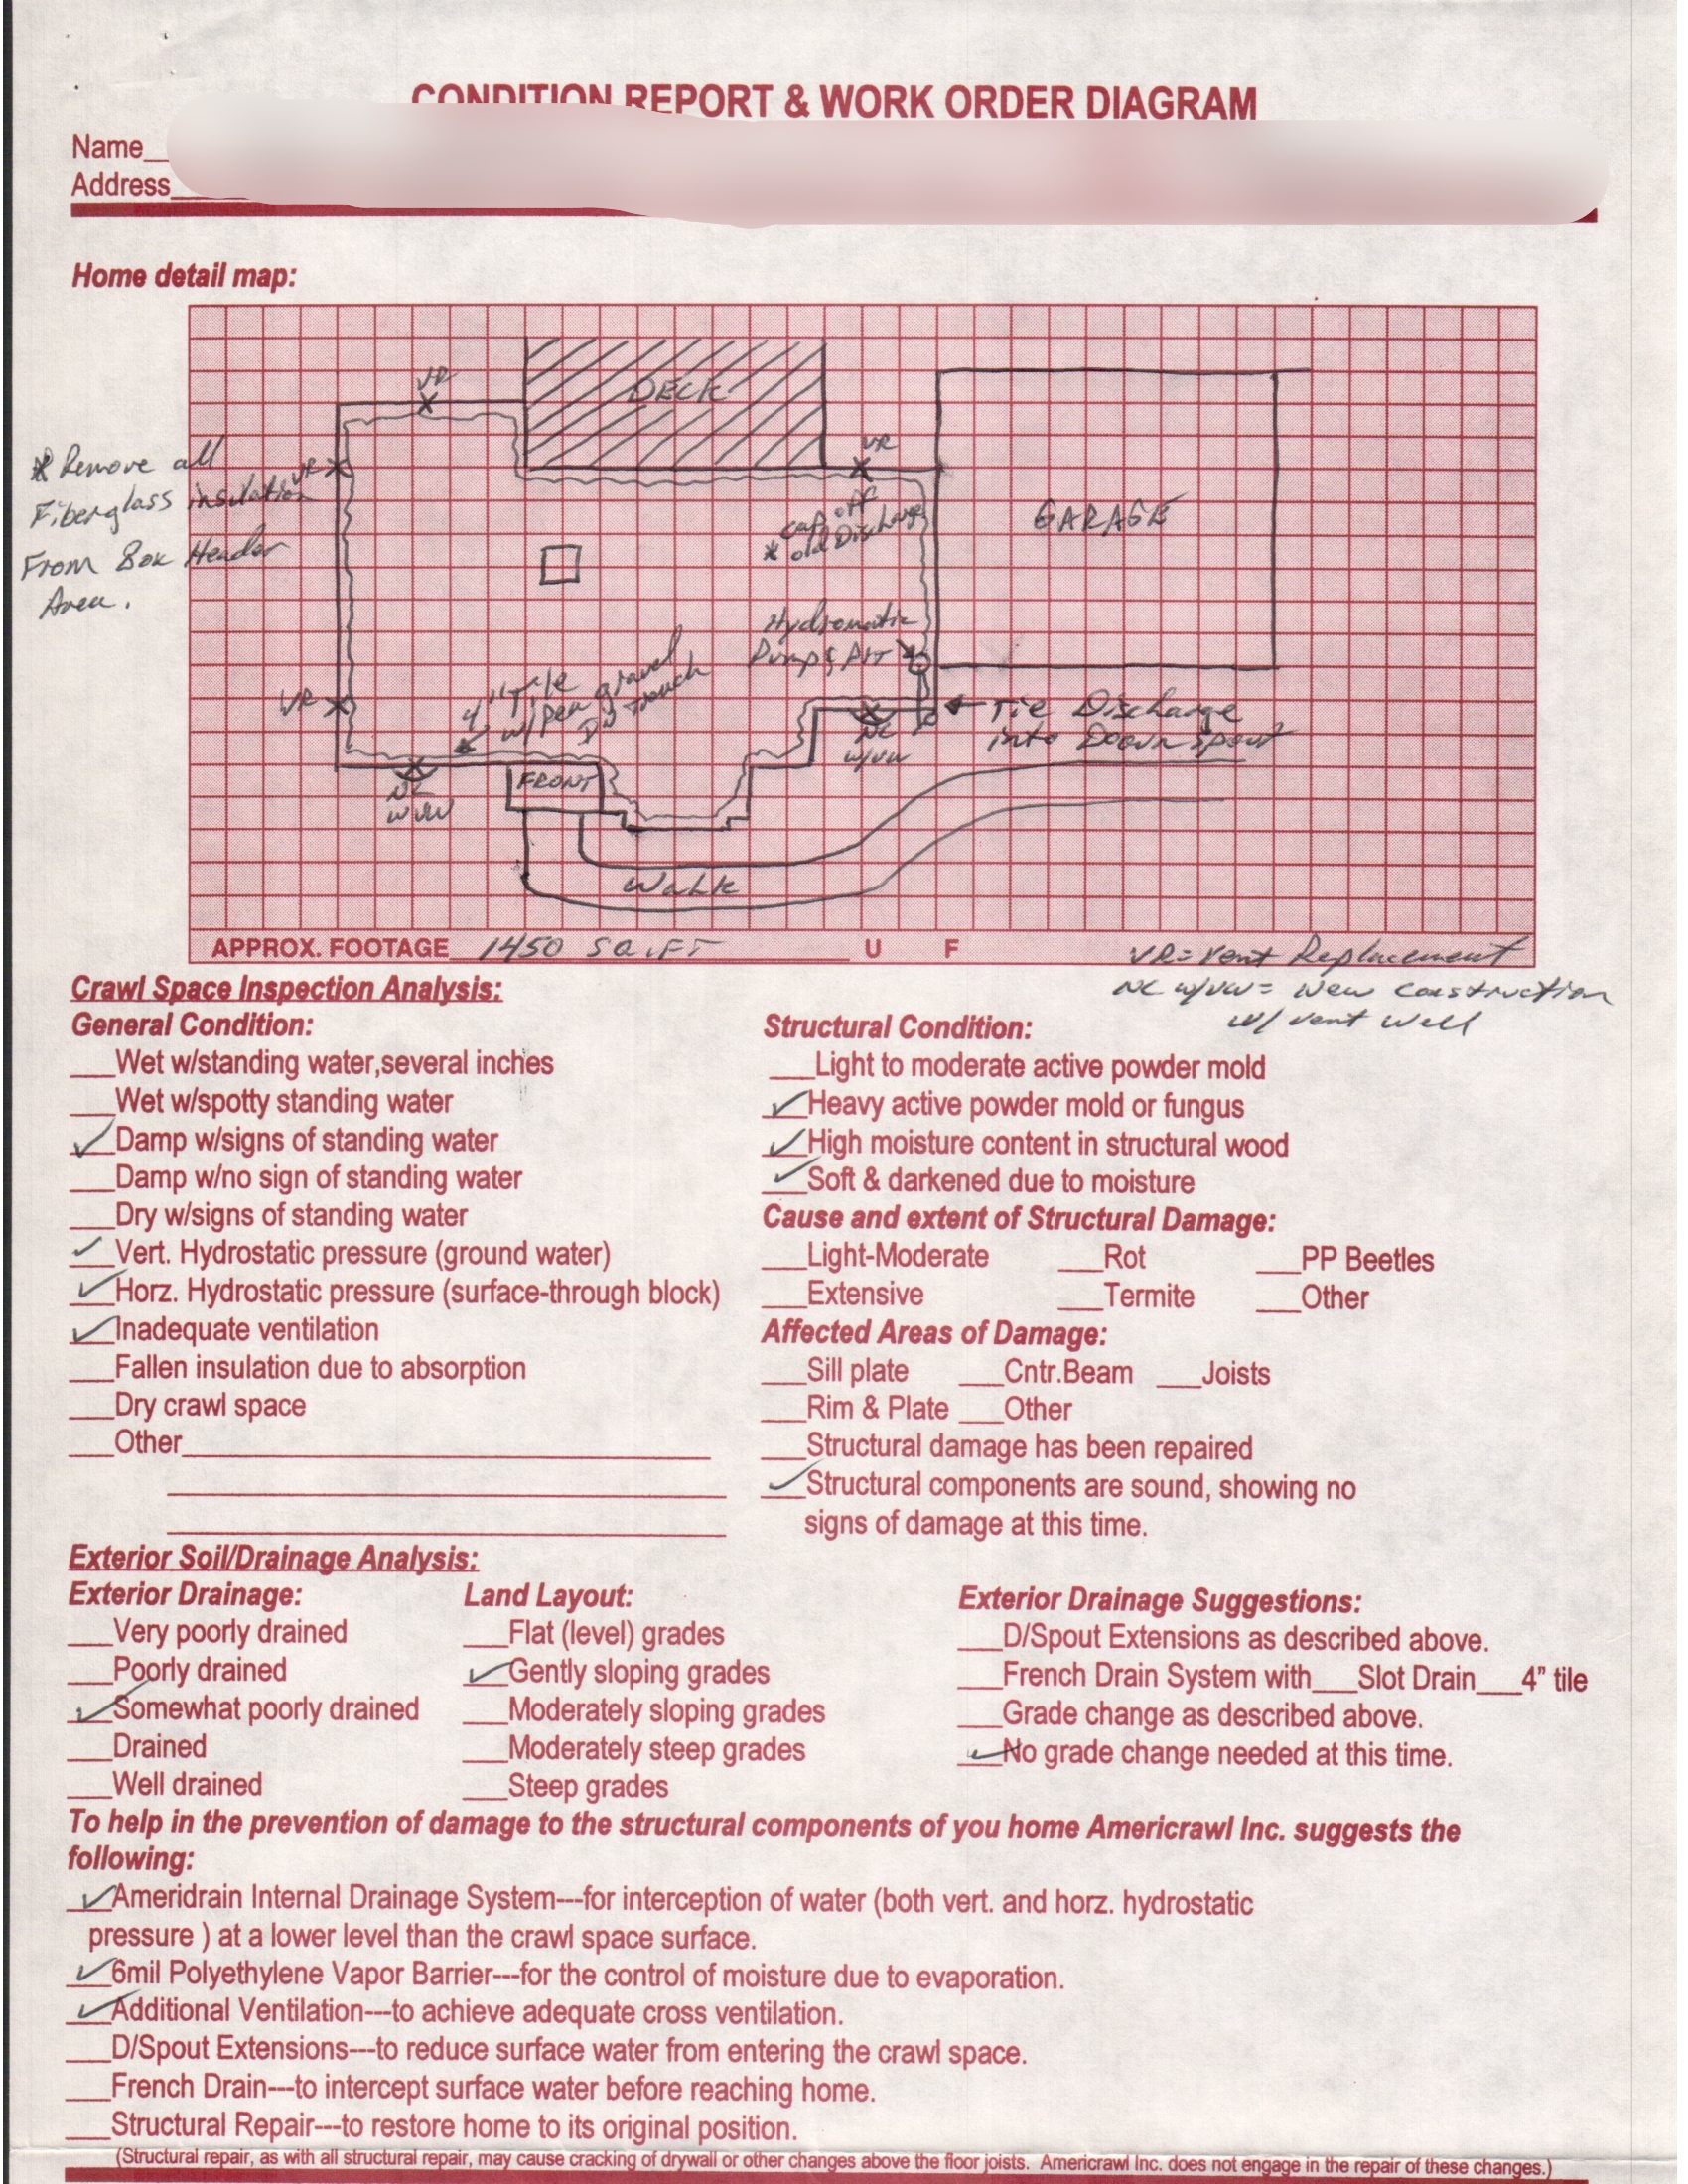 CONDITION REPORT & WORK ORDER DIAGRAM
Name
Address
Home detail map:
VR
DECK
VR
* Remove all
Fiberglass insulation
From Box Header
Area.
VR
cap off
* old Discharge
GARAGE
Hydromatic
Pump & Pit
4" Tile
w/pea gravel
IN trench
VR
Tie Discharge
into Downspout
NC
w/VW
NC
w/VW
FRONT
WALK
APPROX. FOOTAGE 1450 SQ.FT U F
VR= Vent Replacement
NC w/VW= New Construction
w/ Vent Well
Crawl Space Inspection Analysis:
General Condition:
___Wet w/standing water,several inches
___Wet w/spotty standing water
✓Damp w/signs of standing water
___Damp w/no sign of standing water
___Dry w/signs of standing water
✓Vert. Hydrostatic pressure (ground water)
✓Horz. Hydrostatic pressure (surface-through block)
✓Inadequate ventilation
___Fallen insulation due to absorption
___Dry crawl space
___Other
Structural Condition:
___Light to moderate active powder mold
✓Heavy active powder mold or fungus
✓High moisture content in structural wood
✓Soft & darkened due to moisture
Cause and extent of Structural Damage:
___Light-Moderate ___Rot ___PP Beetles
___Extensive ___Termite ___Other
Affected Areas of Damage:
___Sill plate ___Cntr.Beam ___Joists
___Rim & Plate ___Other
___Structural damage has been repaired
✓Structural components are sound, showing no
signs of damage at this time.
Exterior Soil/Drainage Analysis:
Exterior Drainage:
___Very poorly drained
___Poorly drained
✓Somewhat poorly drained
___Drained
___Well drained
Land Layout:
___Flat (level) grades
✓Gently sloping grades
___Moderately sloping grades
___Moderately steep grades
___Steep grades
Exterior Drainage Suggestions:
___D/Spout Extensions as described above.
___French Drain System with___Slot Drain___4" tile
___Grade change as described above.
✓No grade change needed at this time.
To help in the prevention of damage to the structural components of you home Americrawl Inc. suggests the
following:
✓Ameridrain Internal Drainage System---for interception of water (both vert. and horz. hydrostatic
pressure ) at a lower level than the crawl space surface.
✓6mil Polyethylene Vapor Barrier---for the control of moisture due to evaporation.
✓Additional Ventilation---to achieve adequate cross ventilation.
___D/Spout Extensions---to reduce surface water from entering the crawl space.
___French Drain---to intercept surface water before reaching home.
___Structural Repair---to restore home to its original position.
(Structural repair, as with all structural repair, may cause cracking of drywall or other changes above the floor joists. Americrawl Inc. does not engage in the repair of these changes.)